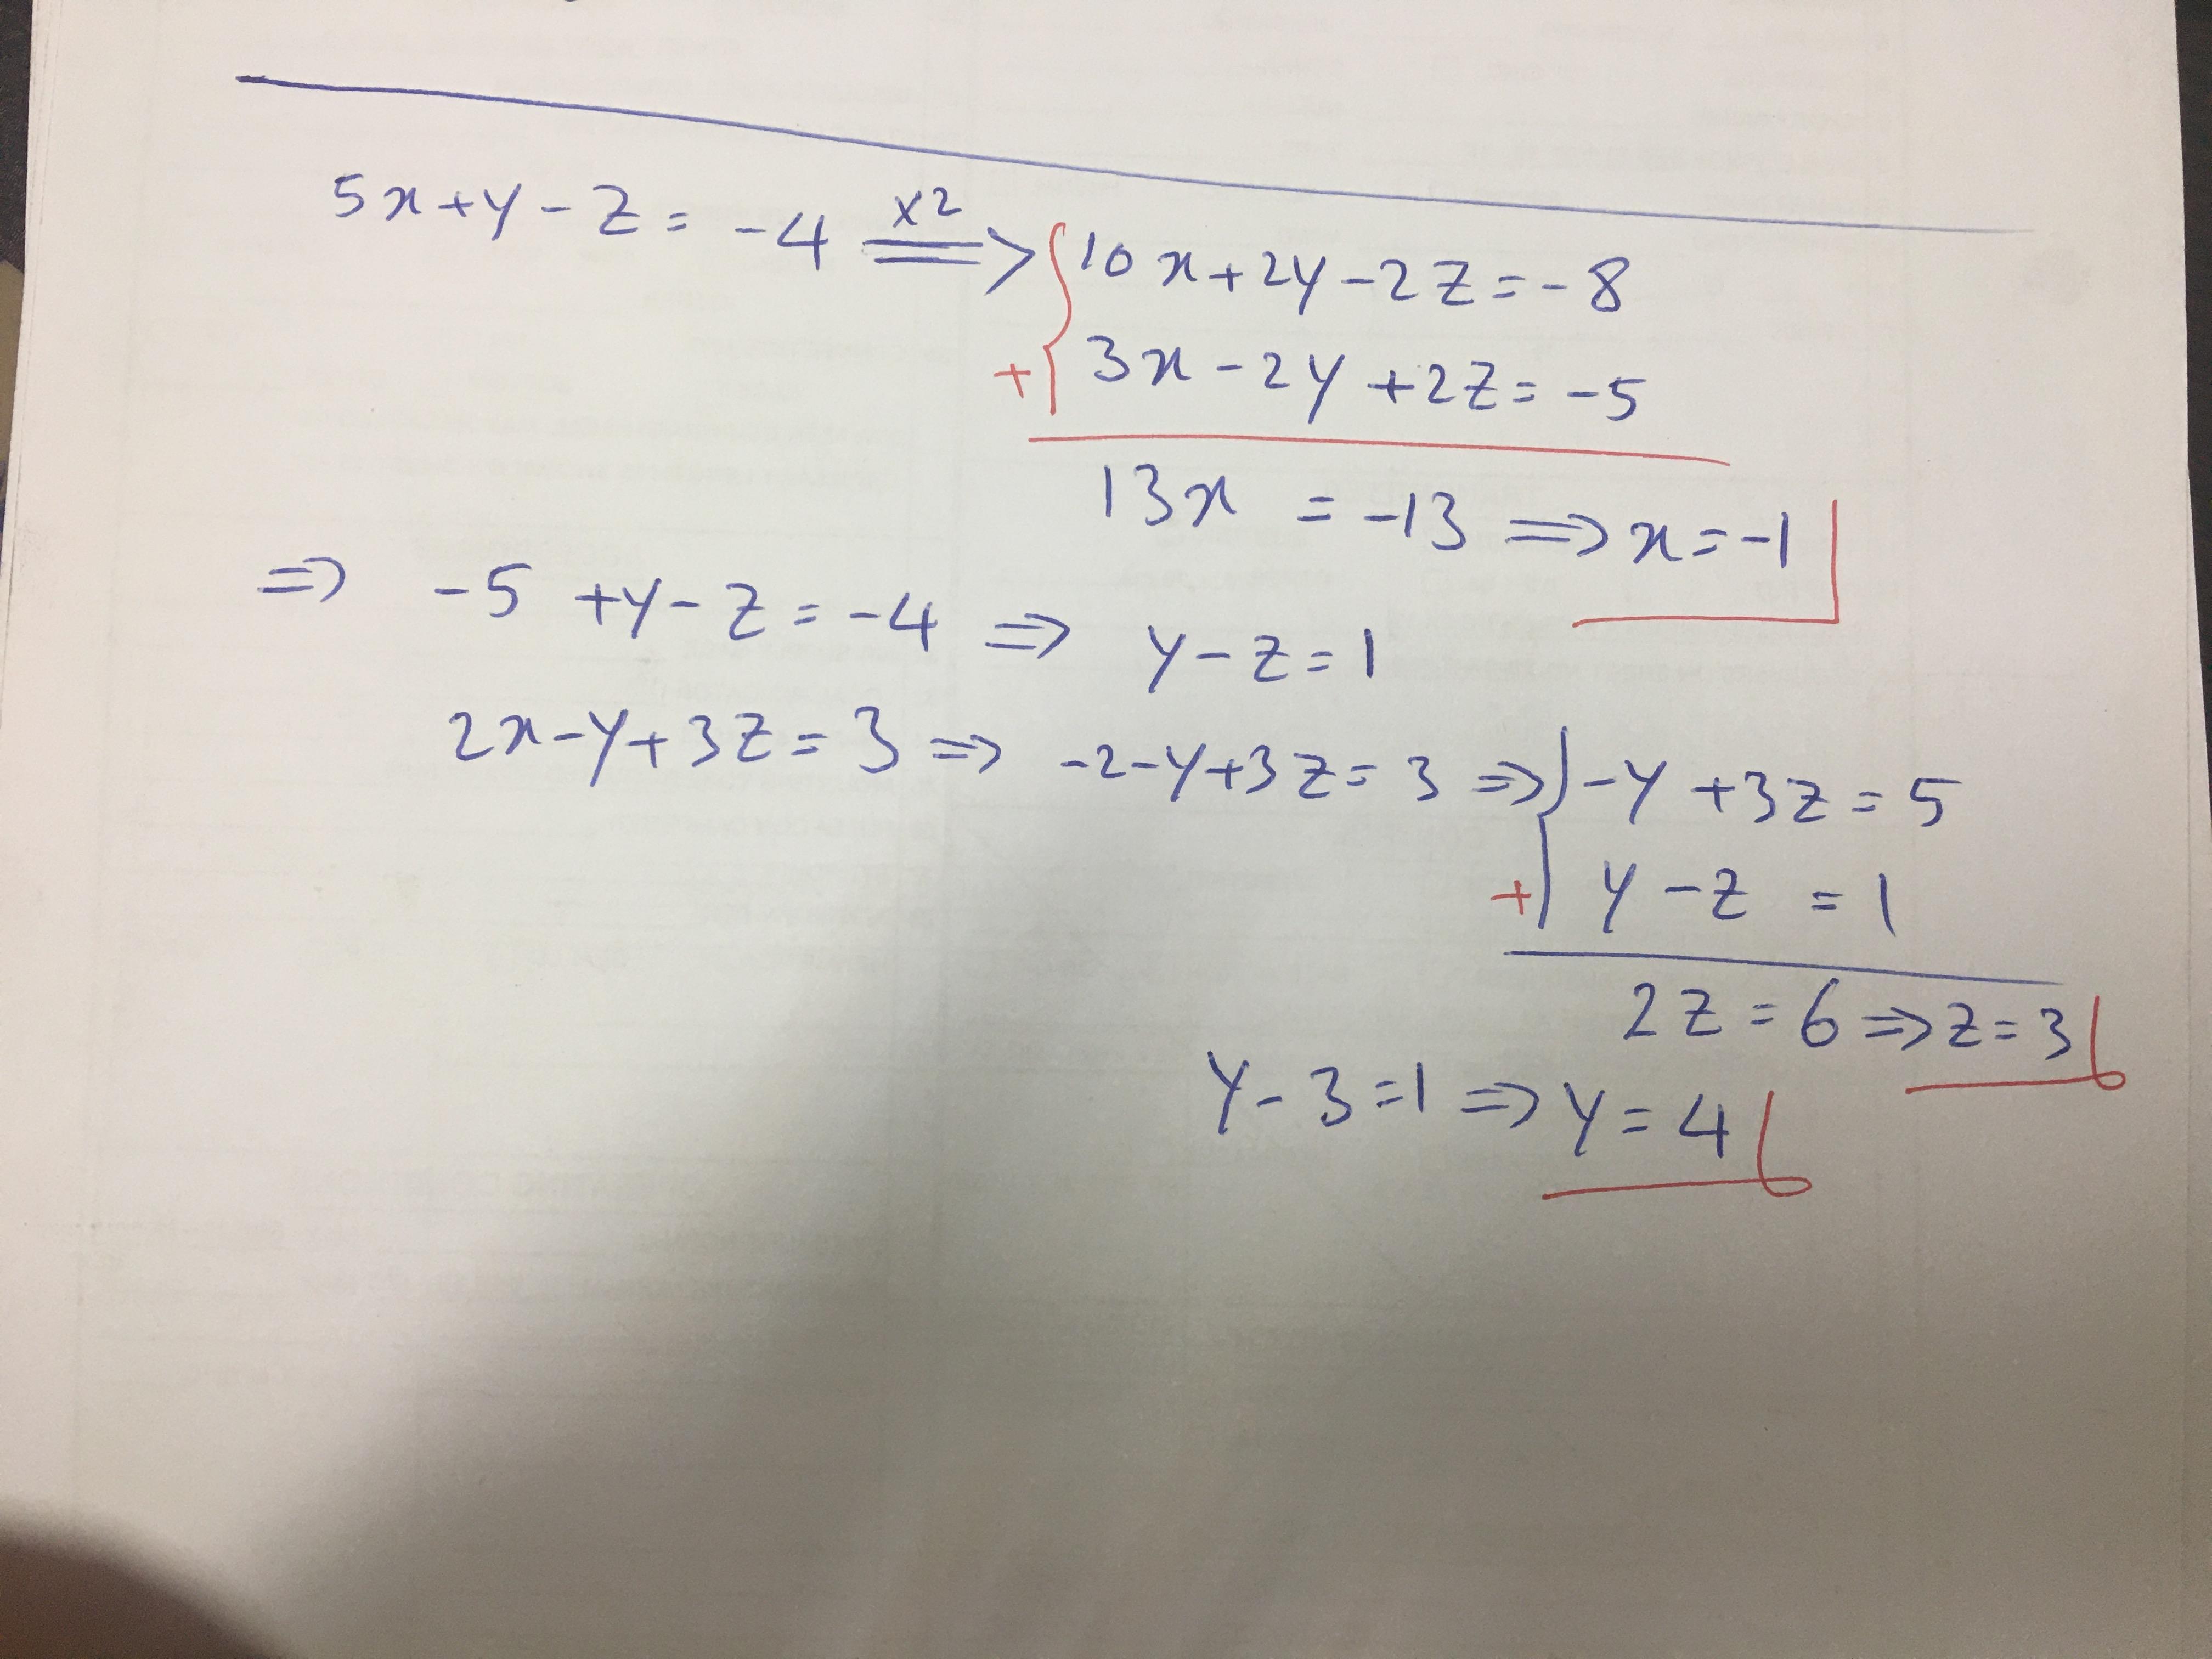 5x+y-z=-4 =×2=> { 10x+2y-2z=-8
+ 3x-2y+2z=-5
13x = -13 => x=-1
=> -5 +y-z=-4 => y-z=1
2x-y+3z=3 => -2-y+3z=3 => { -y+3z=5
+ y-z = 1
2z=6 => z=3
y-3=1 => y=4